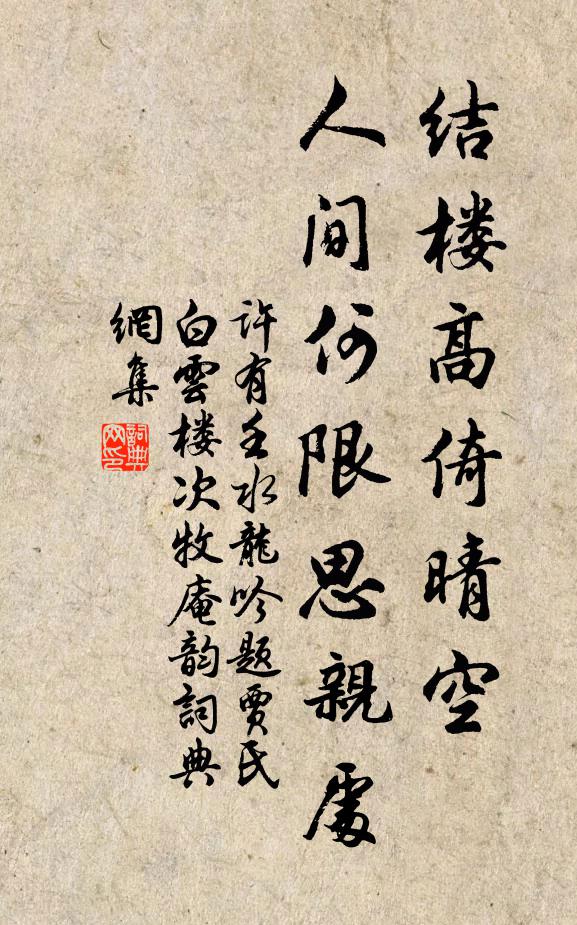 结楼高倚晴空
人间何限思親處
許有壬水龍吟题贾氏
白雲楼次牧庵韵詞典
網集
詞典
网印